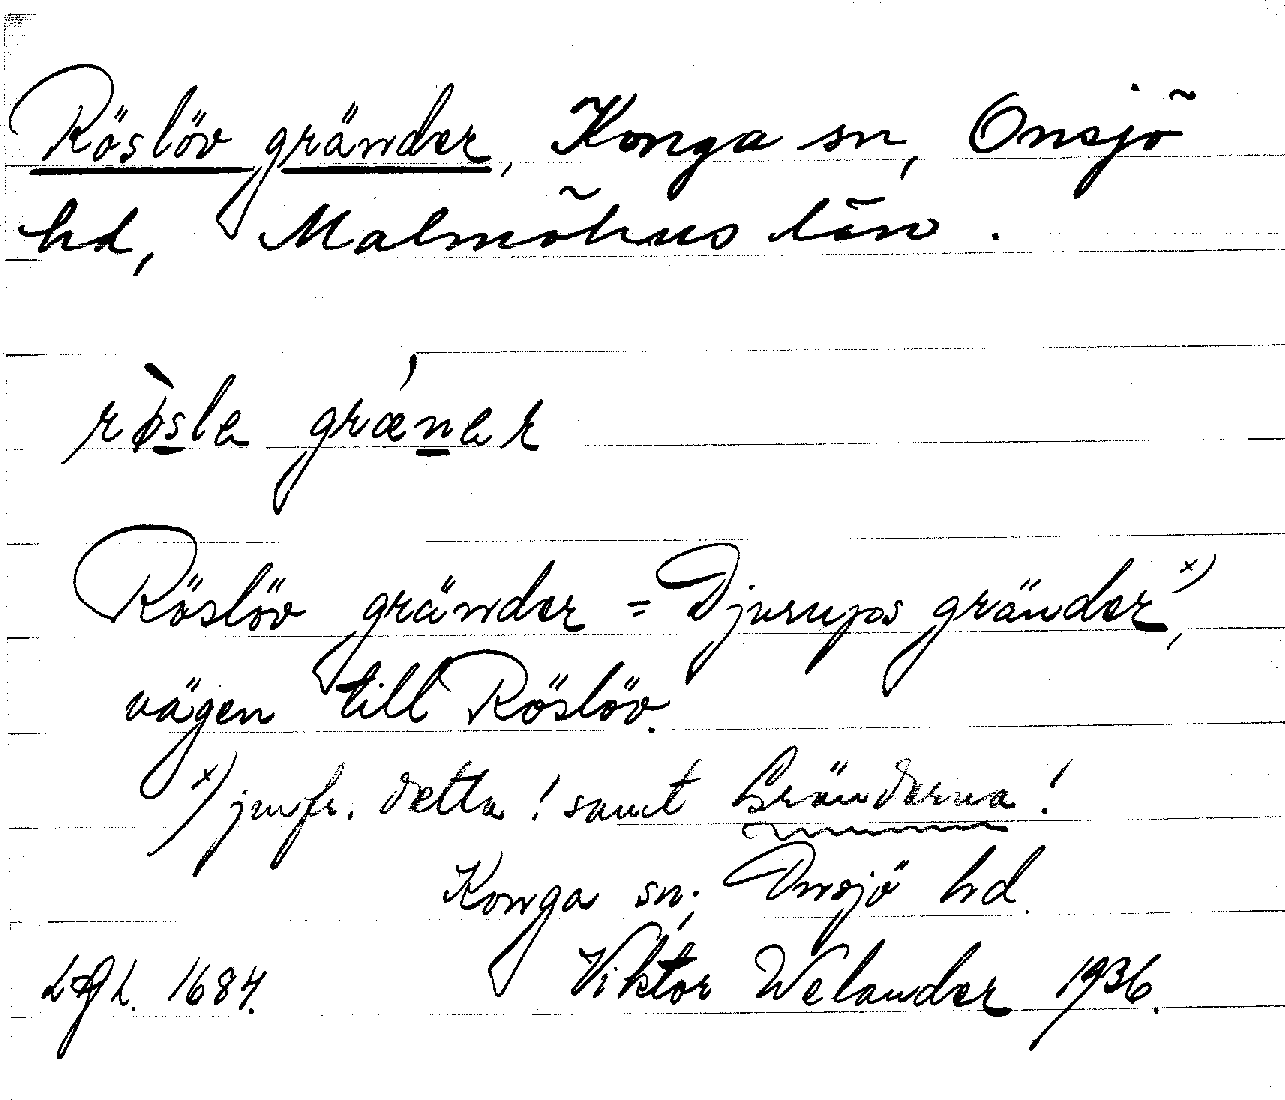 Röslöv gränder, Konga sn, Onsjö
hd, Malmöhus län.
røslɐ grænɐr
Röslöv gränder = Djurups gränder x),
vägen till Röslöv.
x) jmfr. detta! samt Gränderna!
Konga sn; Onsjö hd.
1684. Viktor Welander 1936.